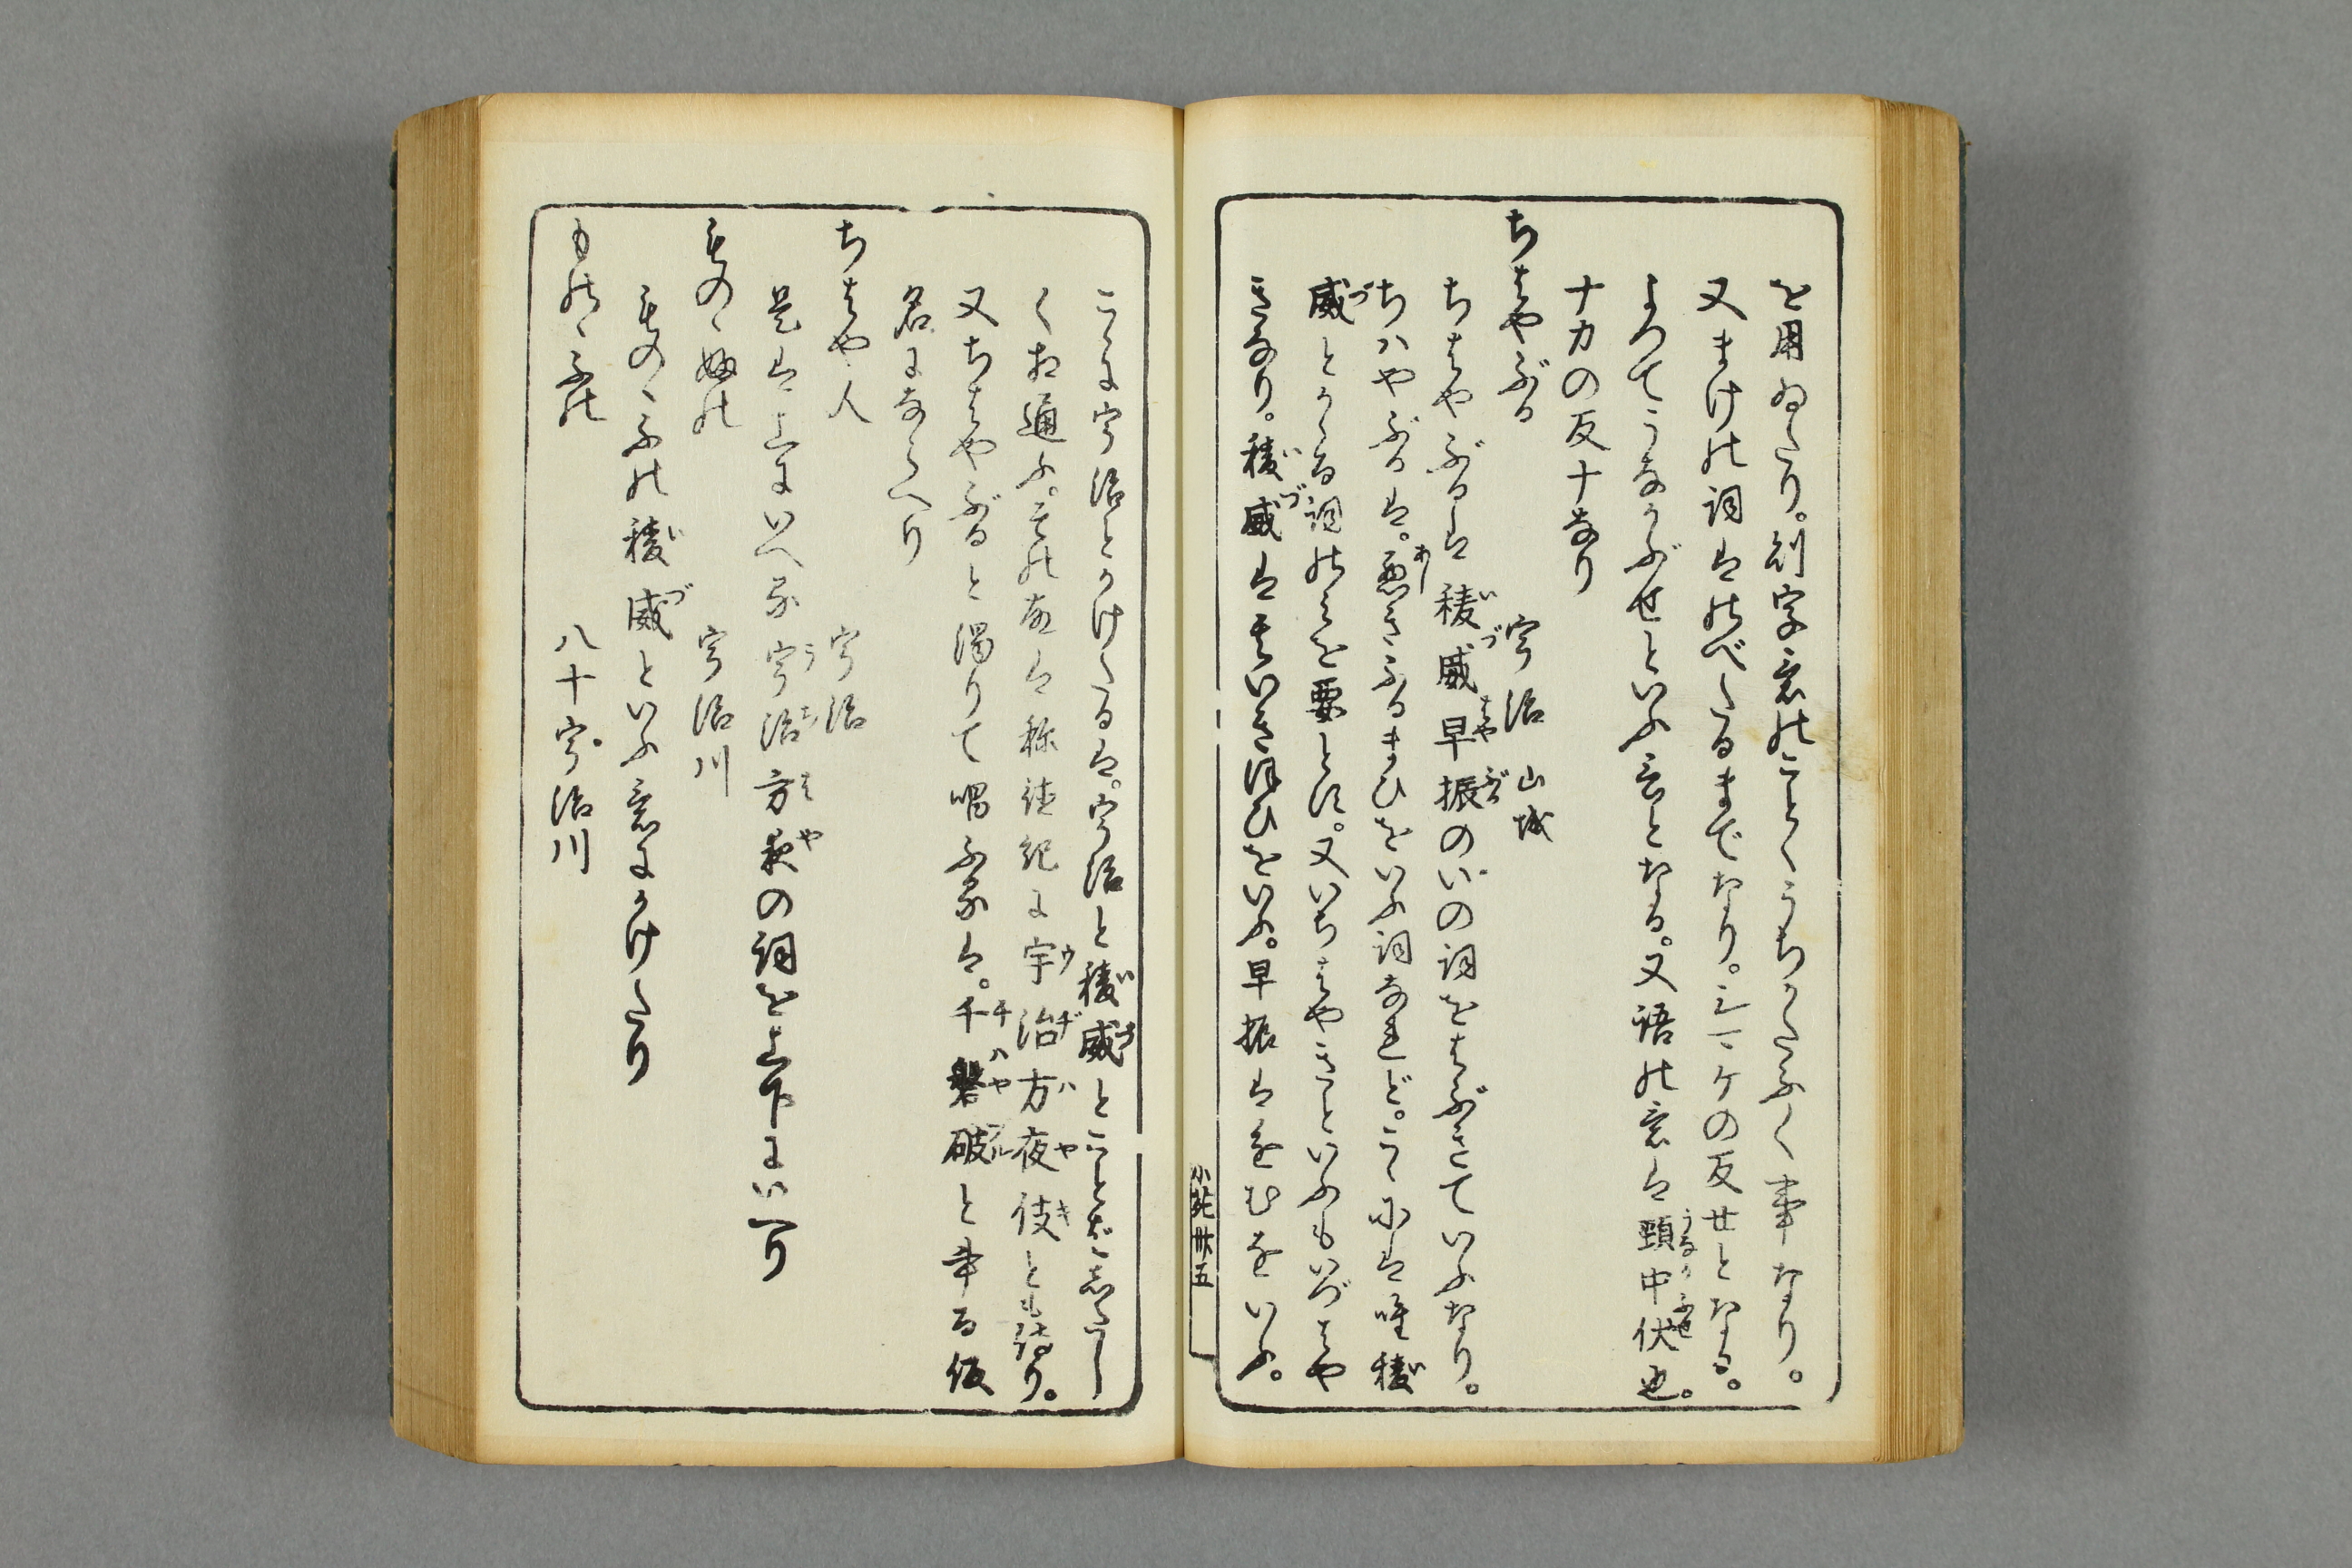 を用ゐたり。刻字意のことくうちかたふく事なり。
又まけの詞はのべたるまでなり。シマケの反せとなる。
よつてうなかぶせといふ言となる。又語の意は頸中伏也。
ナカの反ナなり
ちはやぶる 宇治 山城
ちはやぶるは稜威早振のいの詞をはぶきていふなり。
ちハやぶるは。悪きふるまひをいふ詞なれど。こゝには唯稜
威とかゝる詞のみを要とす。又いちはやきといふもいづはや
きなり。稜威はいきほひをいふ。早振はすゝむをいふ。
小冠 卅五
こゝに宇治とかけたるは。宇治と稜威とことばしたし
くお通ふ。その故は称徳紀に宇治方夜伎とも誥り。
又ちはやぶると濁りて唱ふるは。千磐破と本る仮
名によならへり
ちはや人 宇治
是は上にいへる宇治方夜の詞を上下にいへり
ものゝ婦の 宇治川
ものゝふの稜威といふ意にかけたり
ものゝふの 八十宇治川